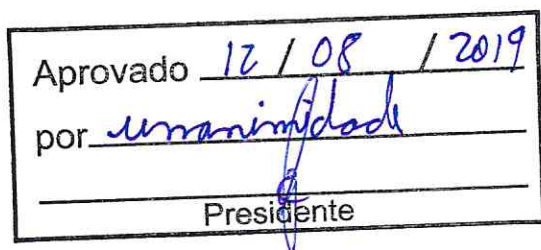 Aprovado 12 / 08 / 2019
por unanimidade
Presidente